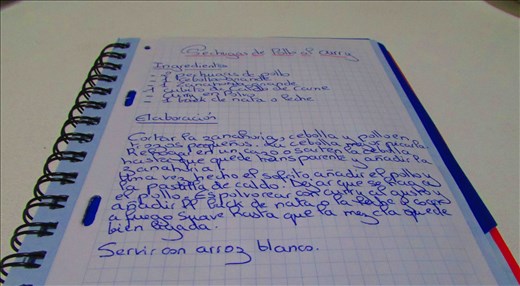 Pechugas de Pollo al curry
Ingredientes
2 Pechugas de pollo
1 Cebolla grande
1 Zanahoria grande
1 Cubito de caldo de carne
Curry en polvo
1 brick de nata o leche
Elaboración
Cortar la zanahoria, cebolla y pollo en
trozos pequeños. La cebolla
en o la cebolla
hasta que quede transparente y añadir la
zanahoria.
Una vez hecho el sofrito añadir el pollo y
la pastilla de caldo. Dejar que se haga
el pollo. Espolvorear con curry al gusto y
añadir el brick de nata o la leche
a fuego suave hasta que la mezcla quede
bien ligada.
Servir con arroz blanco.